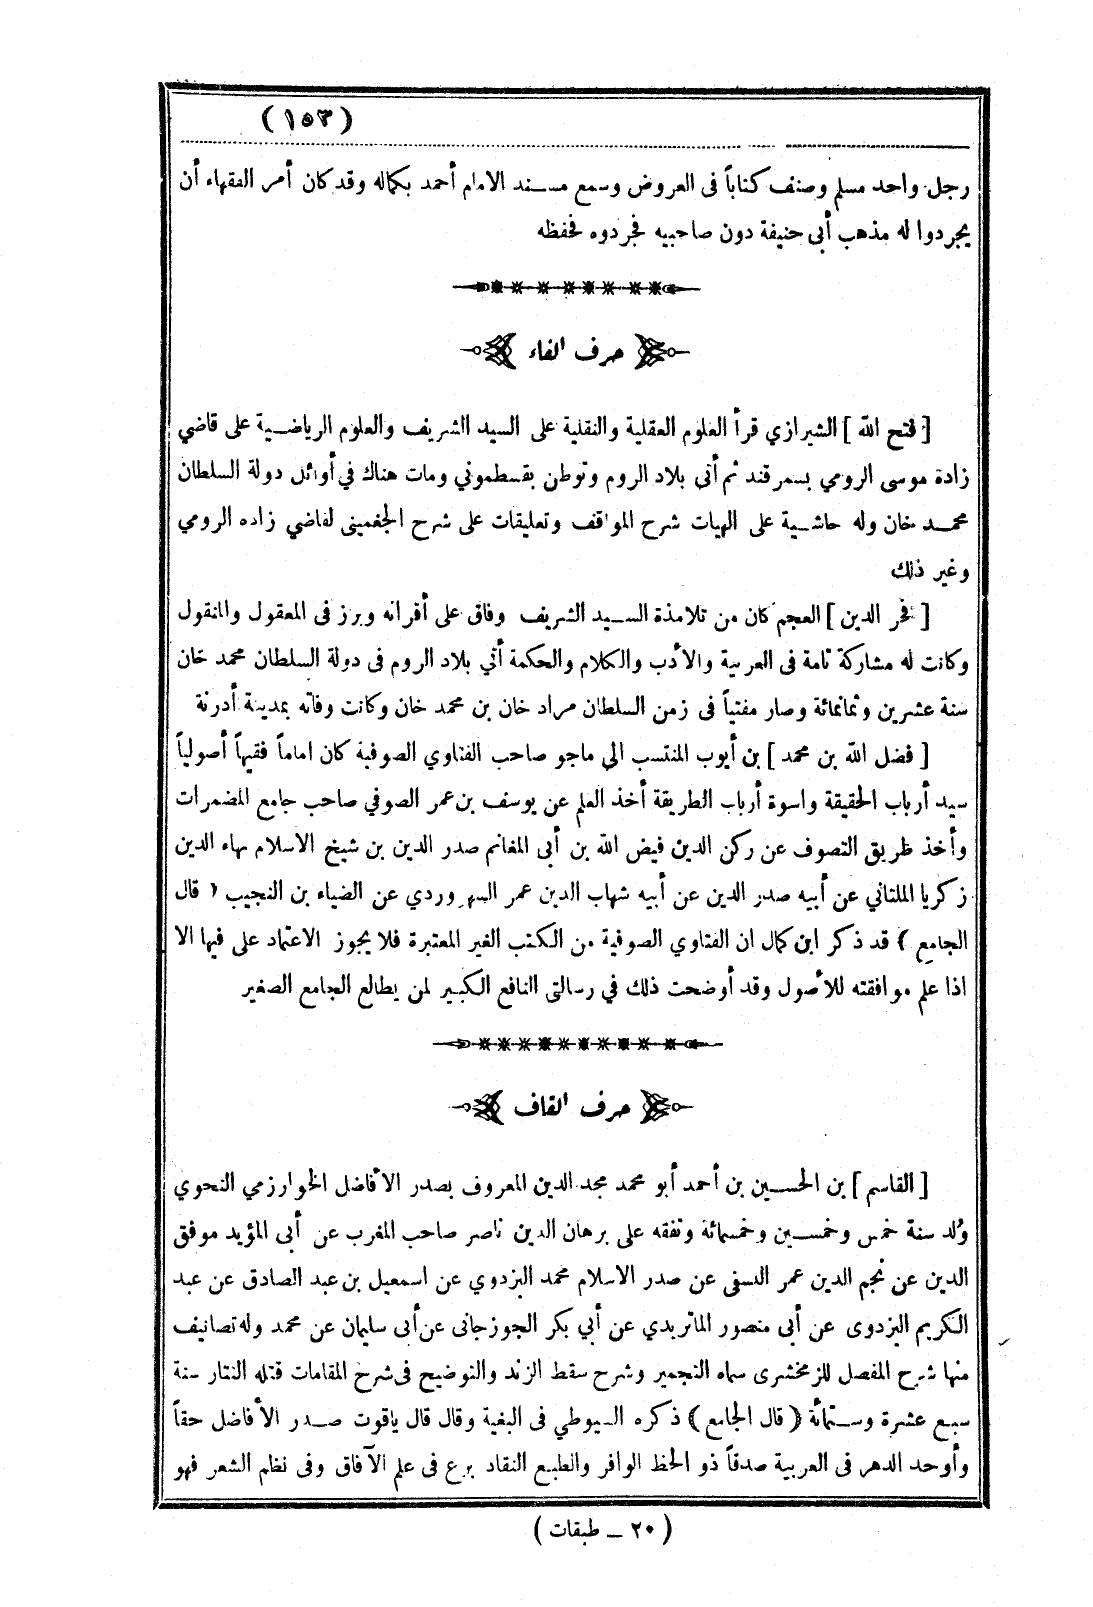 (١٥٣)
رجل واحد مسلم وصنف كتاباً فى العروض وسمع مسند الامام أحمد بكماله وقد كان أمر الفقهاء أن
يجردوا له مذهب أبى حنيفة دون صاحبيه فجردوه فحفظه
حرف الفاء
[ فتح الله ] الشيرازي قرأ العلوم العقلية والنقلية على السيد الشريف والعلوم الرياضية على قاضي
زادة موسى الرومي بسمرقند ثم أتى بلاد الروم وتوطن بقسطموني ومات هناك في أوائل دولة السلطان
محمد خان وله حاشية على الهيات شرح المواقف وتعليقات على شرح الجغمينى لقاضي زاده الرومي
وغير ذلك
[ فخر الدين ] العجم كان من تلامذة السيد الشريف وفاق على أقرانه وبرز فى المعقول والمنقول
وكانت له مشاركة تامة فى العربية والأدب والكلام والحكمة أتي بلاد الروم فى دولة السلطان محمد خان
سنة عشرين وثمانمائة وصار مفتياً فى زمن السلطان مراد خان بن محمد خان وكانت وفاته بمدينة أدرنة
[ فضل الله بن محمد ] بن أيوب المنتسب الى ماجو صاحب الفتاوي الصوفية كان اماماً فقيهاً أصولياً
سيد أرباب الحقيقة واسوة أرباب الطريقة أخذ العلم عن يوسف بن عمر الصوفي صاحب جامع المضمرات
وأخذ طريق التصوف عن ركن الدين فيض الله بن أبى المغانم صدر الدين بن شيخ الاسلام بهاء الدين
زكريا الملتاني عن أبيه صدر الدين عن أبيه شهاب الدين عمر السهروردي عن الضياء بن النجيب ( قال
الجامع ) قد ذكر ابن كمال ان الفتاوي الصوفية من الكتب الغير المعتبرة فلا يجوز الاعتماد على فيها الا
اذا علم موافقته للأصول وقد أوضحت ذلك في رسالتى النافع الكبير لمن يطالع الجامع الصغير
حرف القاف
[ القاسم ] بن الحسين بن أحمد أبو محمد مجد الدين المعروف بصدر الأفاضل الخوارزمي النحوي
ولد سنة خمس وخمسين وخمسمائة وتفقه على برهان الدين ناصر صاحب المغرب عن أبى المؤيد موفق
الدين عن نجم الدين عمر النسفى عن صدر الاسلام محمد البزدوي عن اسمعيل بن عبد الصادق عن عبد
الكريم البزدوى عن أبى منصور الماتريدي عن أبي بكر الجوزجانى عن أبى سليمان عن محمد وله تصانيف
منها شرح المفصل للزمخشرى سماه التجمير وشرح سقط الزند والتوضيح فى شرح المقامات قتله التتار سنة
سبع عشرة وستمائة ( قال الجامع ) ذكره السيوطي فى البغية وقال قال ياقوت صدر الأفاضل حقاً
وأوحد الدهر فى العربية صدقاً ذو الحظ الوافر والطبع النقاد برع فى علم الآفاق وفى نظم الشعر فهو
( ٢٠ ــ طبقات )